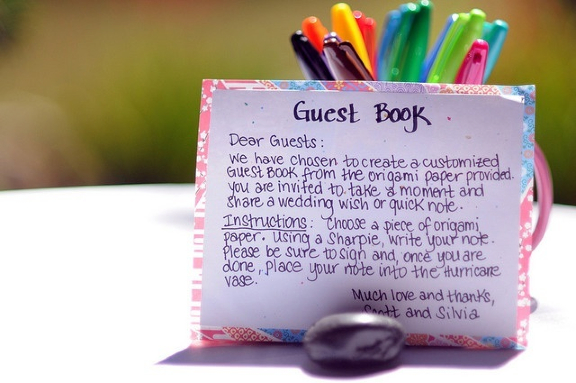 Guest Book
Dear Guests:
We have chosen to create a customized
Guest Book from the origami paper provided.
You are invited to take a moment and
share a wedding wish or quick note.
Instructions: Choose a piece of origami
paper. Using a Sharpie, write your note.
Please be sure to sign and, once you are
done, place your note into the Hurricane
vase.
Much love and thanks,
Scott and Silvia